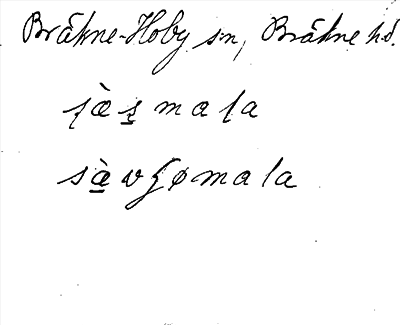 Bräkne-Hoby sn, Bräkne hd.
ʂæ̀ʂmaɭa
sæ̀vʓømala